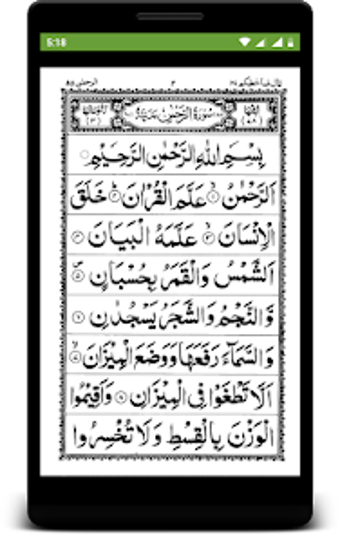 5:18
قال فما خطبكم ٢٧
٣
الرحمٰن ٥٥
سُوْرَةُ الرَّحْمٰنِ مَدَنِيَّةٌ
بِسْمِ اللهِ الرَّحْمٰنِ الرَّحِيْمِ
اَلرَّحْمٰنُ ۝١ عَلَّمَ الْقُرْاٰنَ ۝٢ خَلَقَ
الْاِنْسَانَ ۝٣ عَلَّمَهُ الْبَيَانَ ۝٤
اَلشَّمْسُ وَالْقَمَرُ بِحُسْبَانٍ ۝٥
وَّالنَّجْمُ وَالشَّجَرُ يَسْجُدٰنِ ۝٦
وَالسَّمَآءَ رَفَعَهَا وَوَضَعَ الْمِيْزَانَ ۝٧
اَلَّا تَطْغَوْا فِى الْمِيْزَانِ ۝٨ وَاَقِيْمُوا
الْوَزْنَ بِالْقِسْطِ وَلَا تُخْسِرُوا